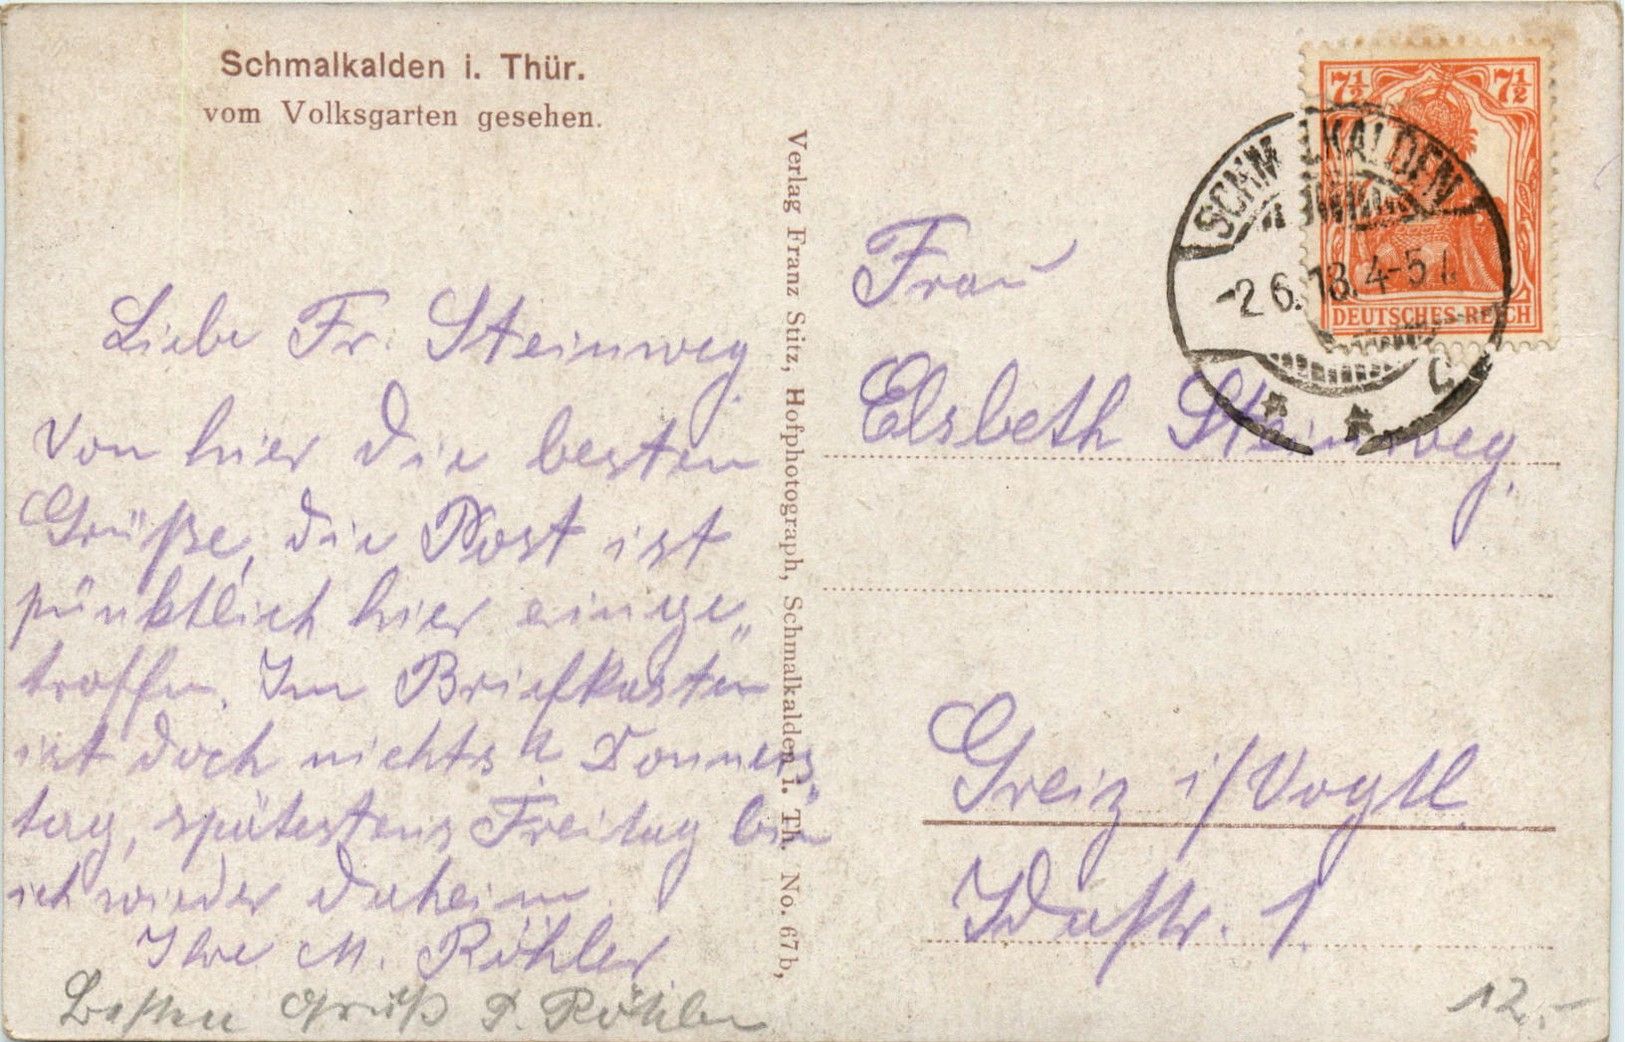 Schmalkalden i. Thür.
vom Volksgarten gesehen.
Liebe Fr. Steinweg.
Von hier die besten
Grüße, die Post ist
pünktlich hier einge„
troffen. Im Briefkasten
ist doch nichts Donners„
tag, spätestens Freitag bin
ich wieder daheim.
Ihre M. Röhler
Besten Gruß P. Röhler
Verlag Franz Stitz, Hofphotograph, Schmalkalden i. Th. No. 67b,
7½ 7½
DEUTSCHES REICH
SCHMALKALDEN
-2 6. 18. 4-5
c
Frau
Elsbeth Steinweg.
Greiz i/Vogtl.
Idastr. 1.
12.-